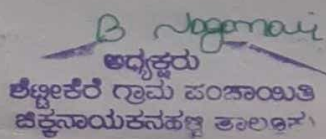 B Nagamani
ಅಧ್ಯಕ್ಷರು
ಶೆಟ್ಟೀಕೆರೆ ಗ್ರಾಮ ಪಂಚಾಯಿತಿ
ಚಿಕ್ಕನಾಯಕನಹಳ್ಳಿ ತಾಲ್ಲೂಕು